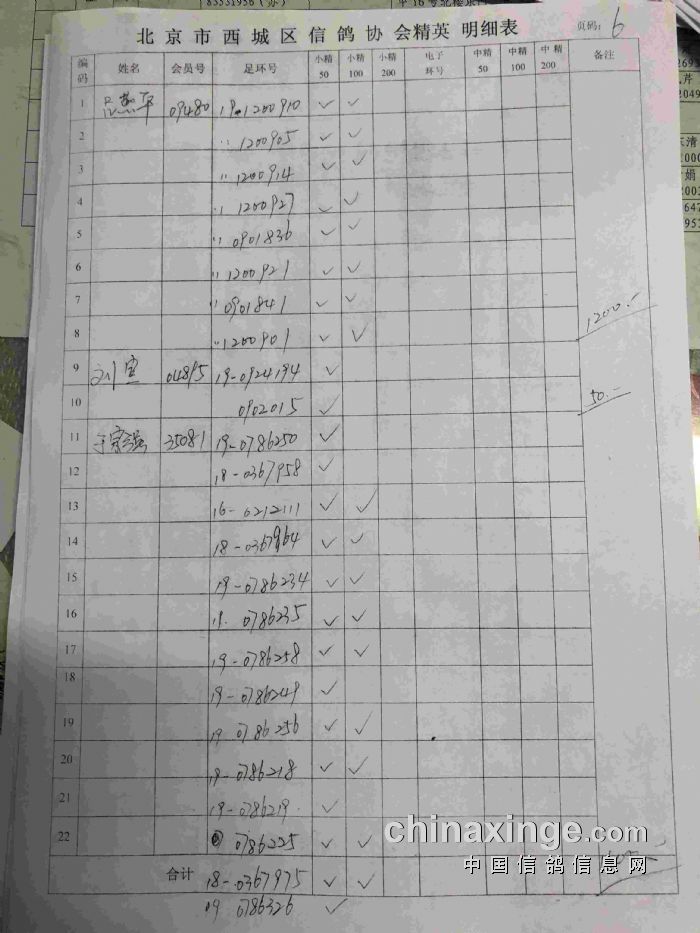 北京市西城区信鸽协会精英 明细表
页码: 6
编码 姓名 会员号 足环号 小精50 小精100 小精200 电子环号 中精50 中精100 中精200 备注
1 09480 19.1200910 ✓ ✓
2 〃 1200905 ✓ ✓
3 〃 1200914 ✓ ✓
4 〃 1200927 ✓ ✓
5 〃 0901836 ✓ ✓
6 〃 1200921 ✓ ✓
7 〃 0901841 ✓ ✓
8 〃 1200901 ✓ ✓ 1200.-
9 刘宣 04895 19-0924194 ✓
10 0902015 ✓ 50.-
11 于宗强 35081 19-0786250 ✓
12 18-0367958 ✓
13 16-0212111 ✓ ✓
14 18-0367964 ✓ ✓
15 19-0786234 ✓ ✓
16 19. 0786235 ✓ ✓
17 19-0786258 ✓ ✓
18 19-0786249 ✓
19 19 0786256 ✓ ✓
20 19-0786218 ✓ ✓
21 19-0786219. ✓
22 0786225 ✓ ✓
合计 18-0367975 ✓ ✓
19 0786326 ✓
chinaxinge.com
中国信鸽信息网